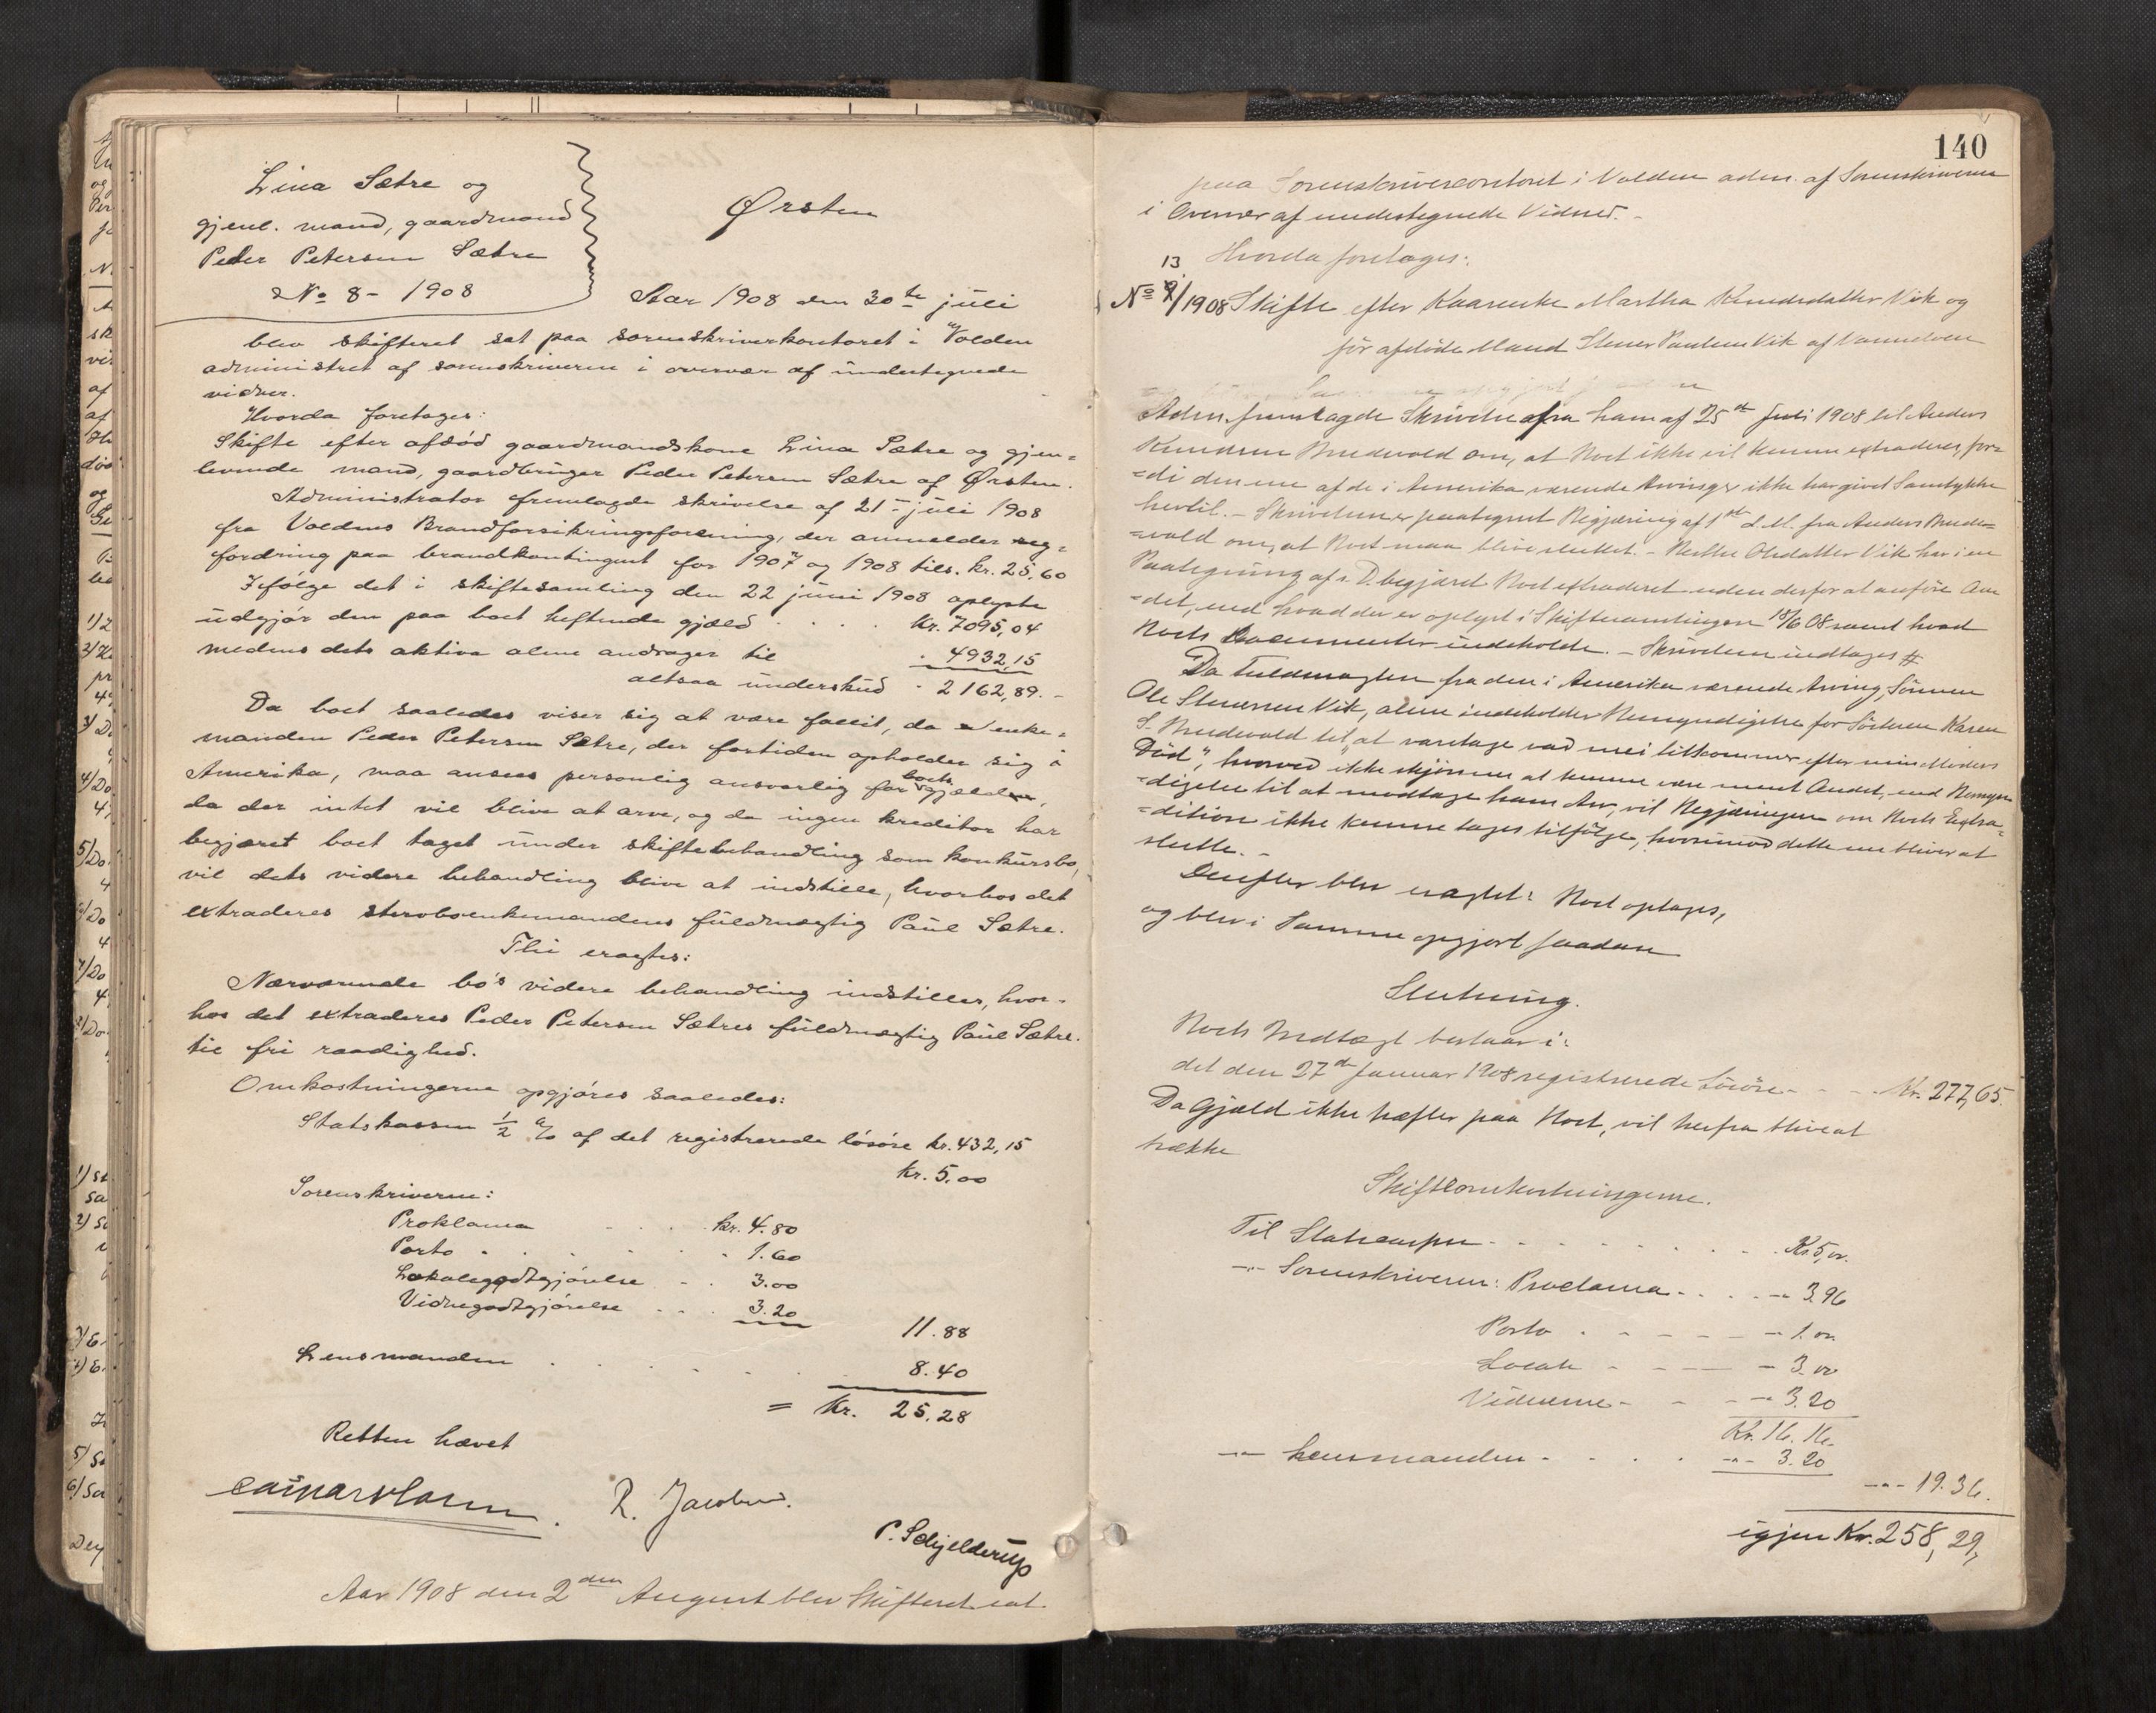 Lina Sætre og
gjenl. mand, gaardmand
Peder Petersen Sætre
No 8 - 1908
Ørsten
Aar 1908 den 30te juli
blev skifteret sat paa sorenskriverkontoret i Volden
administret af sorenskriveren i overvær af undertegnede
vidner.
Hvorda foretages:
Skifte efter afdød gaardmandskone Lina Sætre og gjen=
levende mand, gaardbruger Peder Petersen Sætre af Ørsten.
Administrator fremlagde skrivelse af 21 juli 1908
fra Voldens Brandforsikringsforening, der anmelder
fordring paa brandkontingent for 1907 og 1908 tils. kr. 25,60
Ifølge det i skiftesamling den 22 juni 1908 oplyste
udgjør den paa boet heftende gjæld . . . . kr. 7095,04
medens dets aktiva alene andrager til . 4932,15
altsaa underskud . 2162,89. -
Da boet saaledes viser sig at være fallit, da enke=
manden Peder Petersen Sætre, der fortiden opholder sig i
Amerika, maa ansees personlig ansvarlig for boets gjæld,
da der intet vil blive at arve, og da ingen kreditor har
begjæret boet taget under skiftebehandling som konkursbo,
vil dets videre behandling blive at indstille, hvorhos det
extraderes sterboenkemandens fuldmægtig Paul Sætre.
Thi eragtes:
Nærværende bo's videre behandling indstilles, hvor-
hos det extraderes Peder Petersen Sætres fuldmægtig Paul Sætre.
til fri raadighed.
Omkostningerne opgjøres saaledes:
Statskassen 1/2 % af det registrerede løsøre kr. 432,15
kr. 5.00
Sorenskriveren:
Proklama . . . kr. 4.80
Porto . . . . . . 1.60
Lokalegodtgjørelse . . 3.00
Vidnegodtgjørelse . . . 3.20
11.88
Lensmanden . . . . . . 8.40
= Kr. 25.28
Retten hævet
R. Jacobsen.
P. Schjelderup
Aar 1908 den 2den August blev Skifteret sat
140
paa Sorenskrivercontoret i Volden adm. af Sorenskriveren
i Overvær af undertegnede Vidner. -
Hvorda foretages:
13
No 9/1908 Skifte efter Martha Knudsdatter Vik og
før afdøde Mand Stener Paulsen Vik af Vannelven
Adm. fremlagde Skrivelse fra ham af 25de Juli 1908 til Anders
Knudsen Bredvold om, at Boet ikke vil kunne extraderes, for=
=di den ene af de i Amerika værende Arvinger ikke har givet Samtykke
hertil. - Skrivelsen er paategnet Begjæring af 1ste d. M. fra Anders Brede=
=vold om, at Boet maa blive sluttet. - Olsdatter Vik har i en
Paategning af s. D. begjæret Boet extraderet uden derfor at anføre An
=det, end hvad der er oplyst i Skiftesamlingen 18/6 08 samt hvad
Boets Documenter indeholde. - Skrivelsen indtages #
Da Fuldmagten fra den i Amerika værende Arving, Sønnen
Ole Stenersen Vik, alene indeholder Bemyndigelse for Søsteren Karen
S. Bredvold til "at varetage vad mei tilkommer efter min Moders
Död", hvorved ikke skjönnes at kunne være ment Andet, end Bemyn
=digelse til at modtage hans Arv, vil Begjæringen om Boets Extra=
=dition ikke kunne tages tilfølge, hvorimod dette nu bliver at
slutte. -
Derefter blev eragtet: Boet optages,
og blev i Samme opgjort saadan
Slutning.
Boets Indtægt bestaar i:
det den 27de Januar 1908 registrerede Løsøre - - - Kr. 277,65.
Da Gjæld ikke hæfter paa Boet, vil herfra blive at
trække
Skifteomkostningerne.
Til Statscassen - - - - - - Kr. 5,00.
-"- Sorenskriveren: Proclama . . . . -"- 3,96
Porto . - - - - - 1.00
Locale - - - - - 3.00
Vidnerne - - - -"- 3.20
Kr. 16.16.
-"- Lensmanden . . . . -"- 3.20
-"- 19.36.
igjen Kr. 258,29,